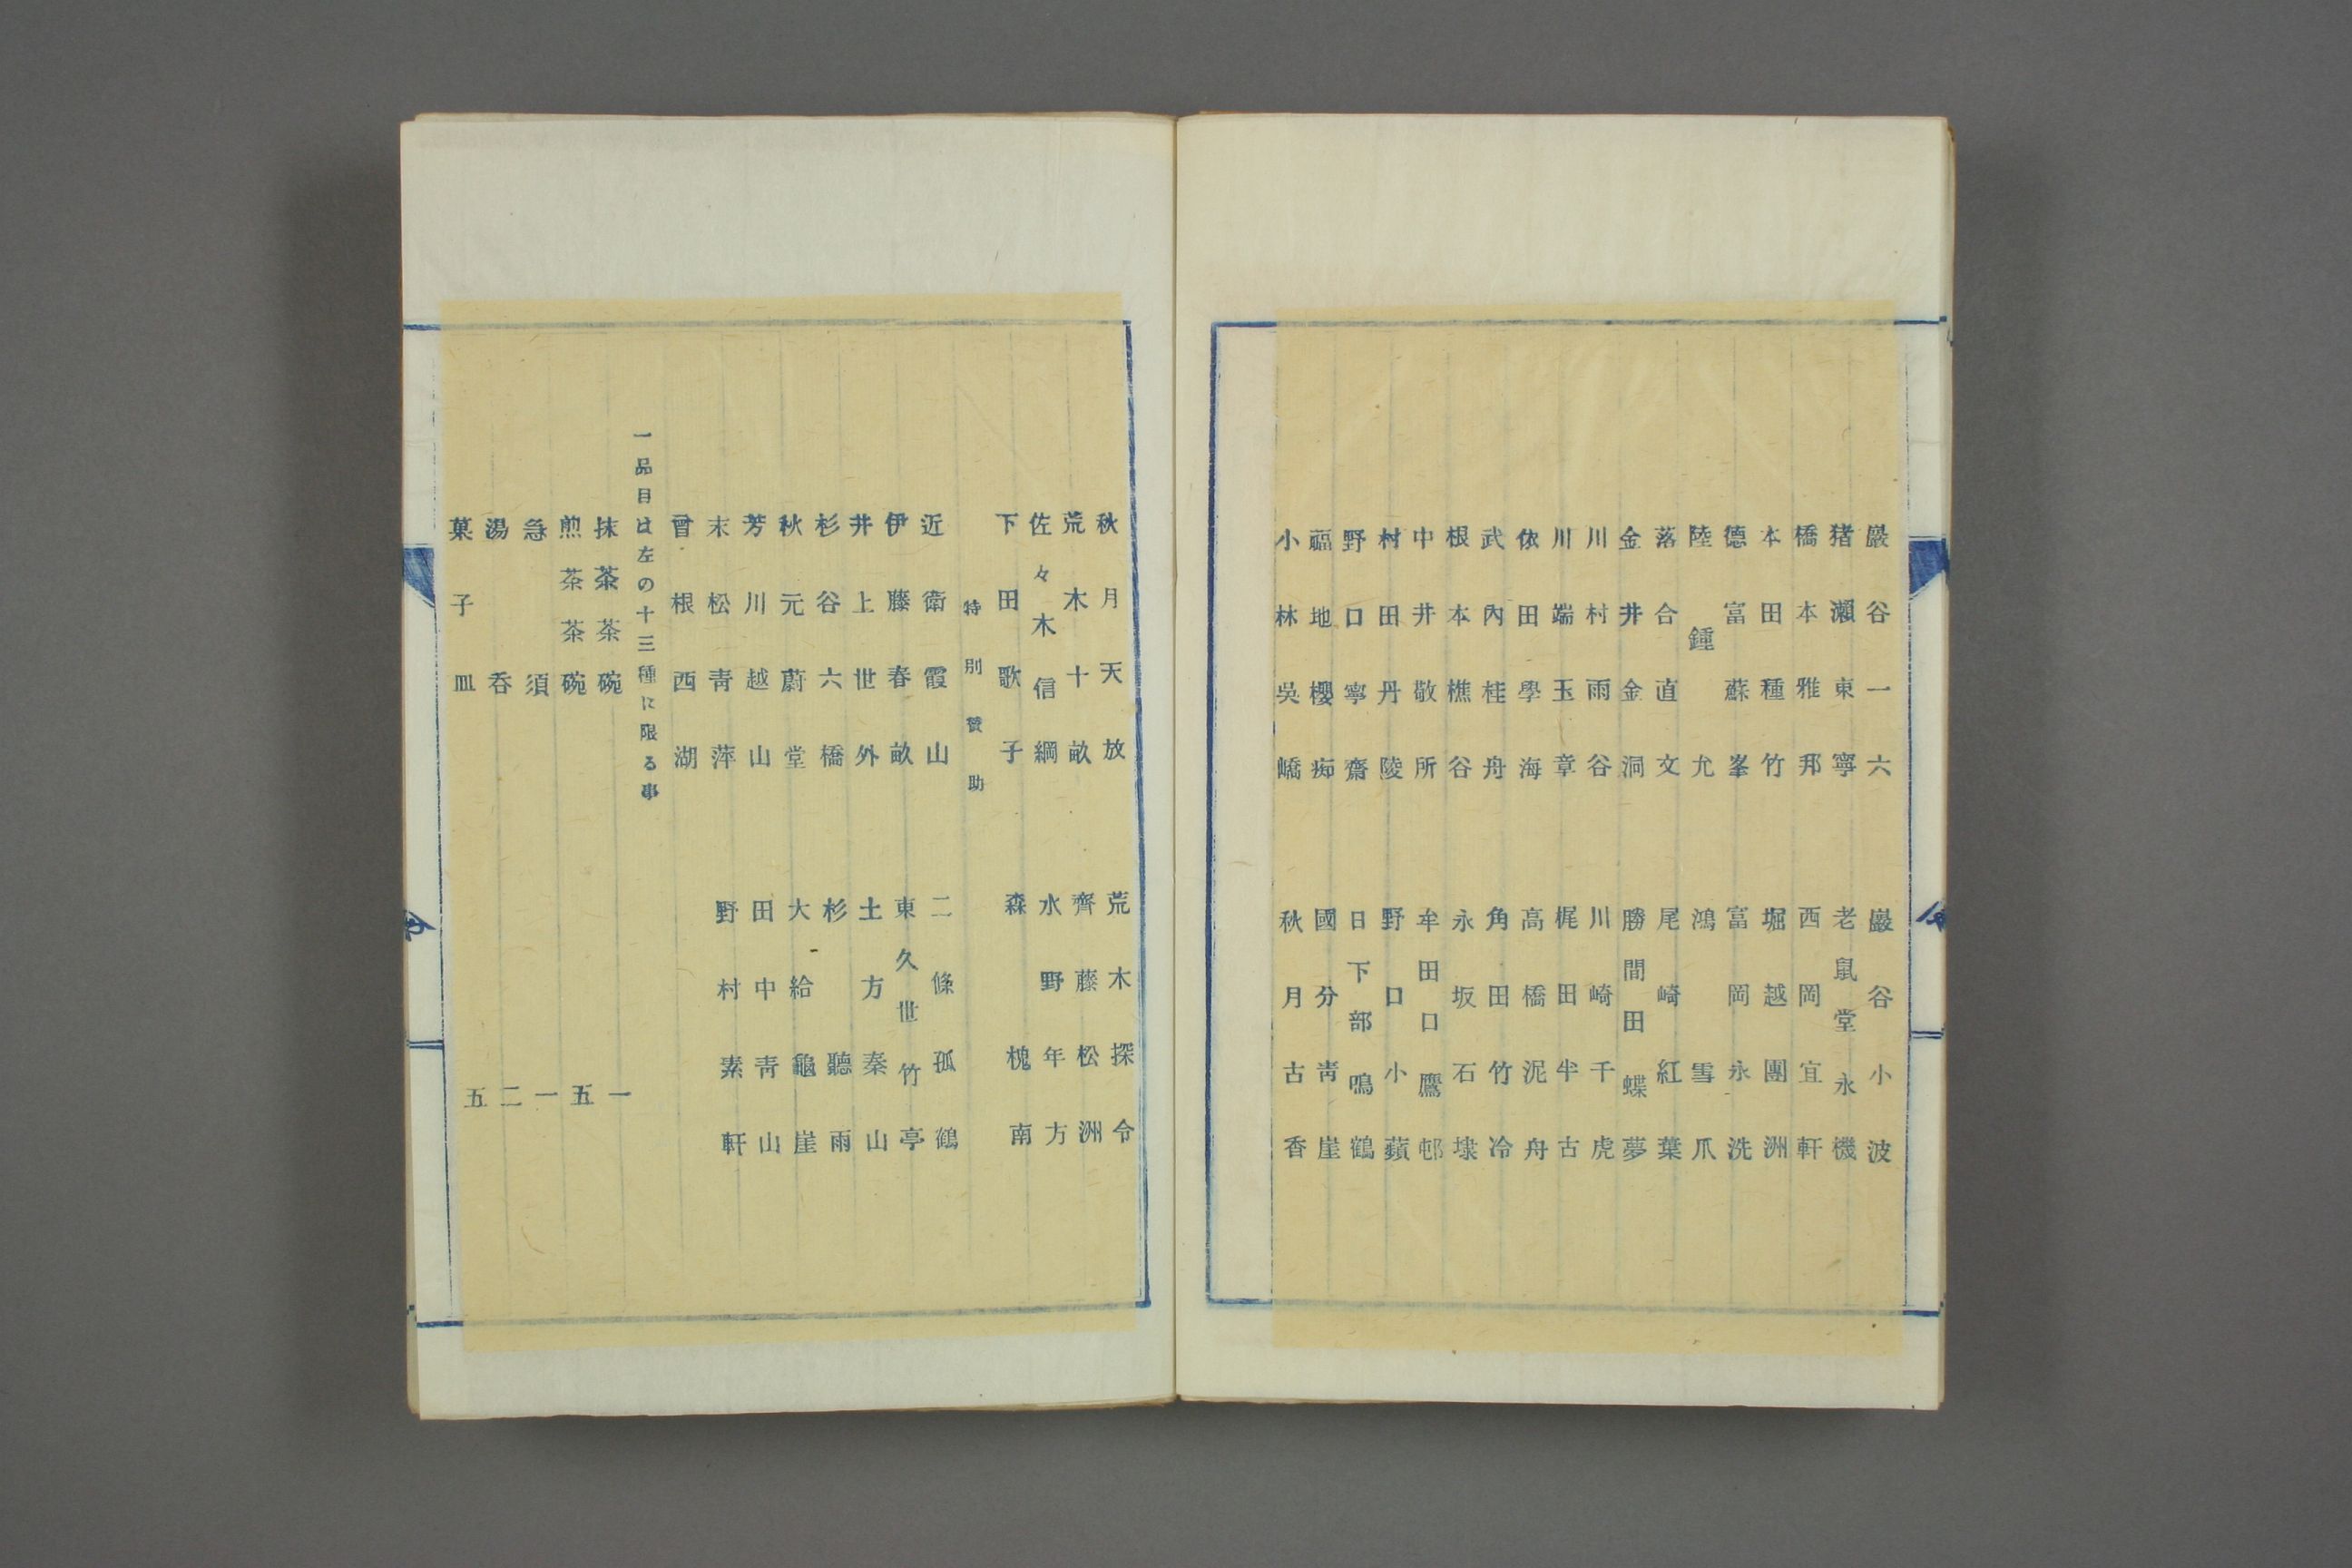 巖谷一六　巖谷小波
猪瀬東寧　老鼠堂永機
橋本雅邦　西岡宜軒
本田種竹　堀越團洲
德富蘇峯　富岡永洗
陸鍾允　鴻雪爪
落合直文　尾崎紅葉
金井金洞　勝間田蝶夢
川村雨谷　川崎千虎
川端玉章　梶田半古
依田學海　高橋泥舟
武內桂舟　角田竹冷
根本樵谷　永坂石埭
中井敬所　牟田口鷹邨
村田丹陵　野口小蘋
野口寧齋　日下部鳴鶴
福地櫻痴　國分靑崖
小林吳嶠　秋月古香
秋月天放　荒木探令
荒木十畝　齊藤松洲
佐々木信綱　水野年方
下田歌子　森槐南
特別賛助
近衛霞山　二條孤鶴
伊藤春畝　東久世竹亭
井上世外　土方秦山
杉谷六橋　杉聽雨
秋元蔚堂　大給龜崖
芳川越山　田中靑山
末松靑萍　野村素軒
曾根西湖
一品目は左の十三種に限る事
抹茶茶碗　一
煎茶茶碗　五
急須　一
湯呑　二
菓子皿　五